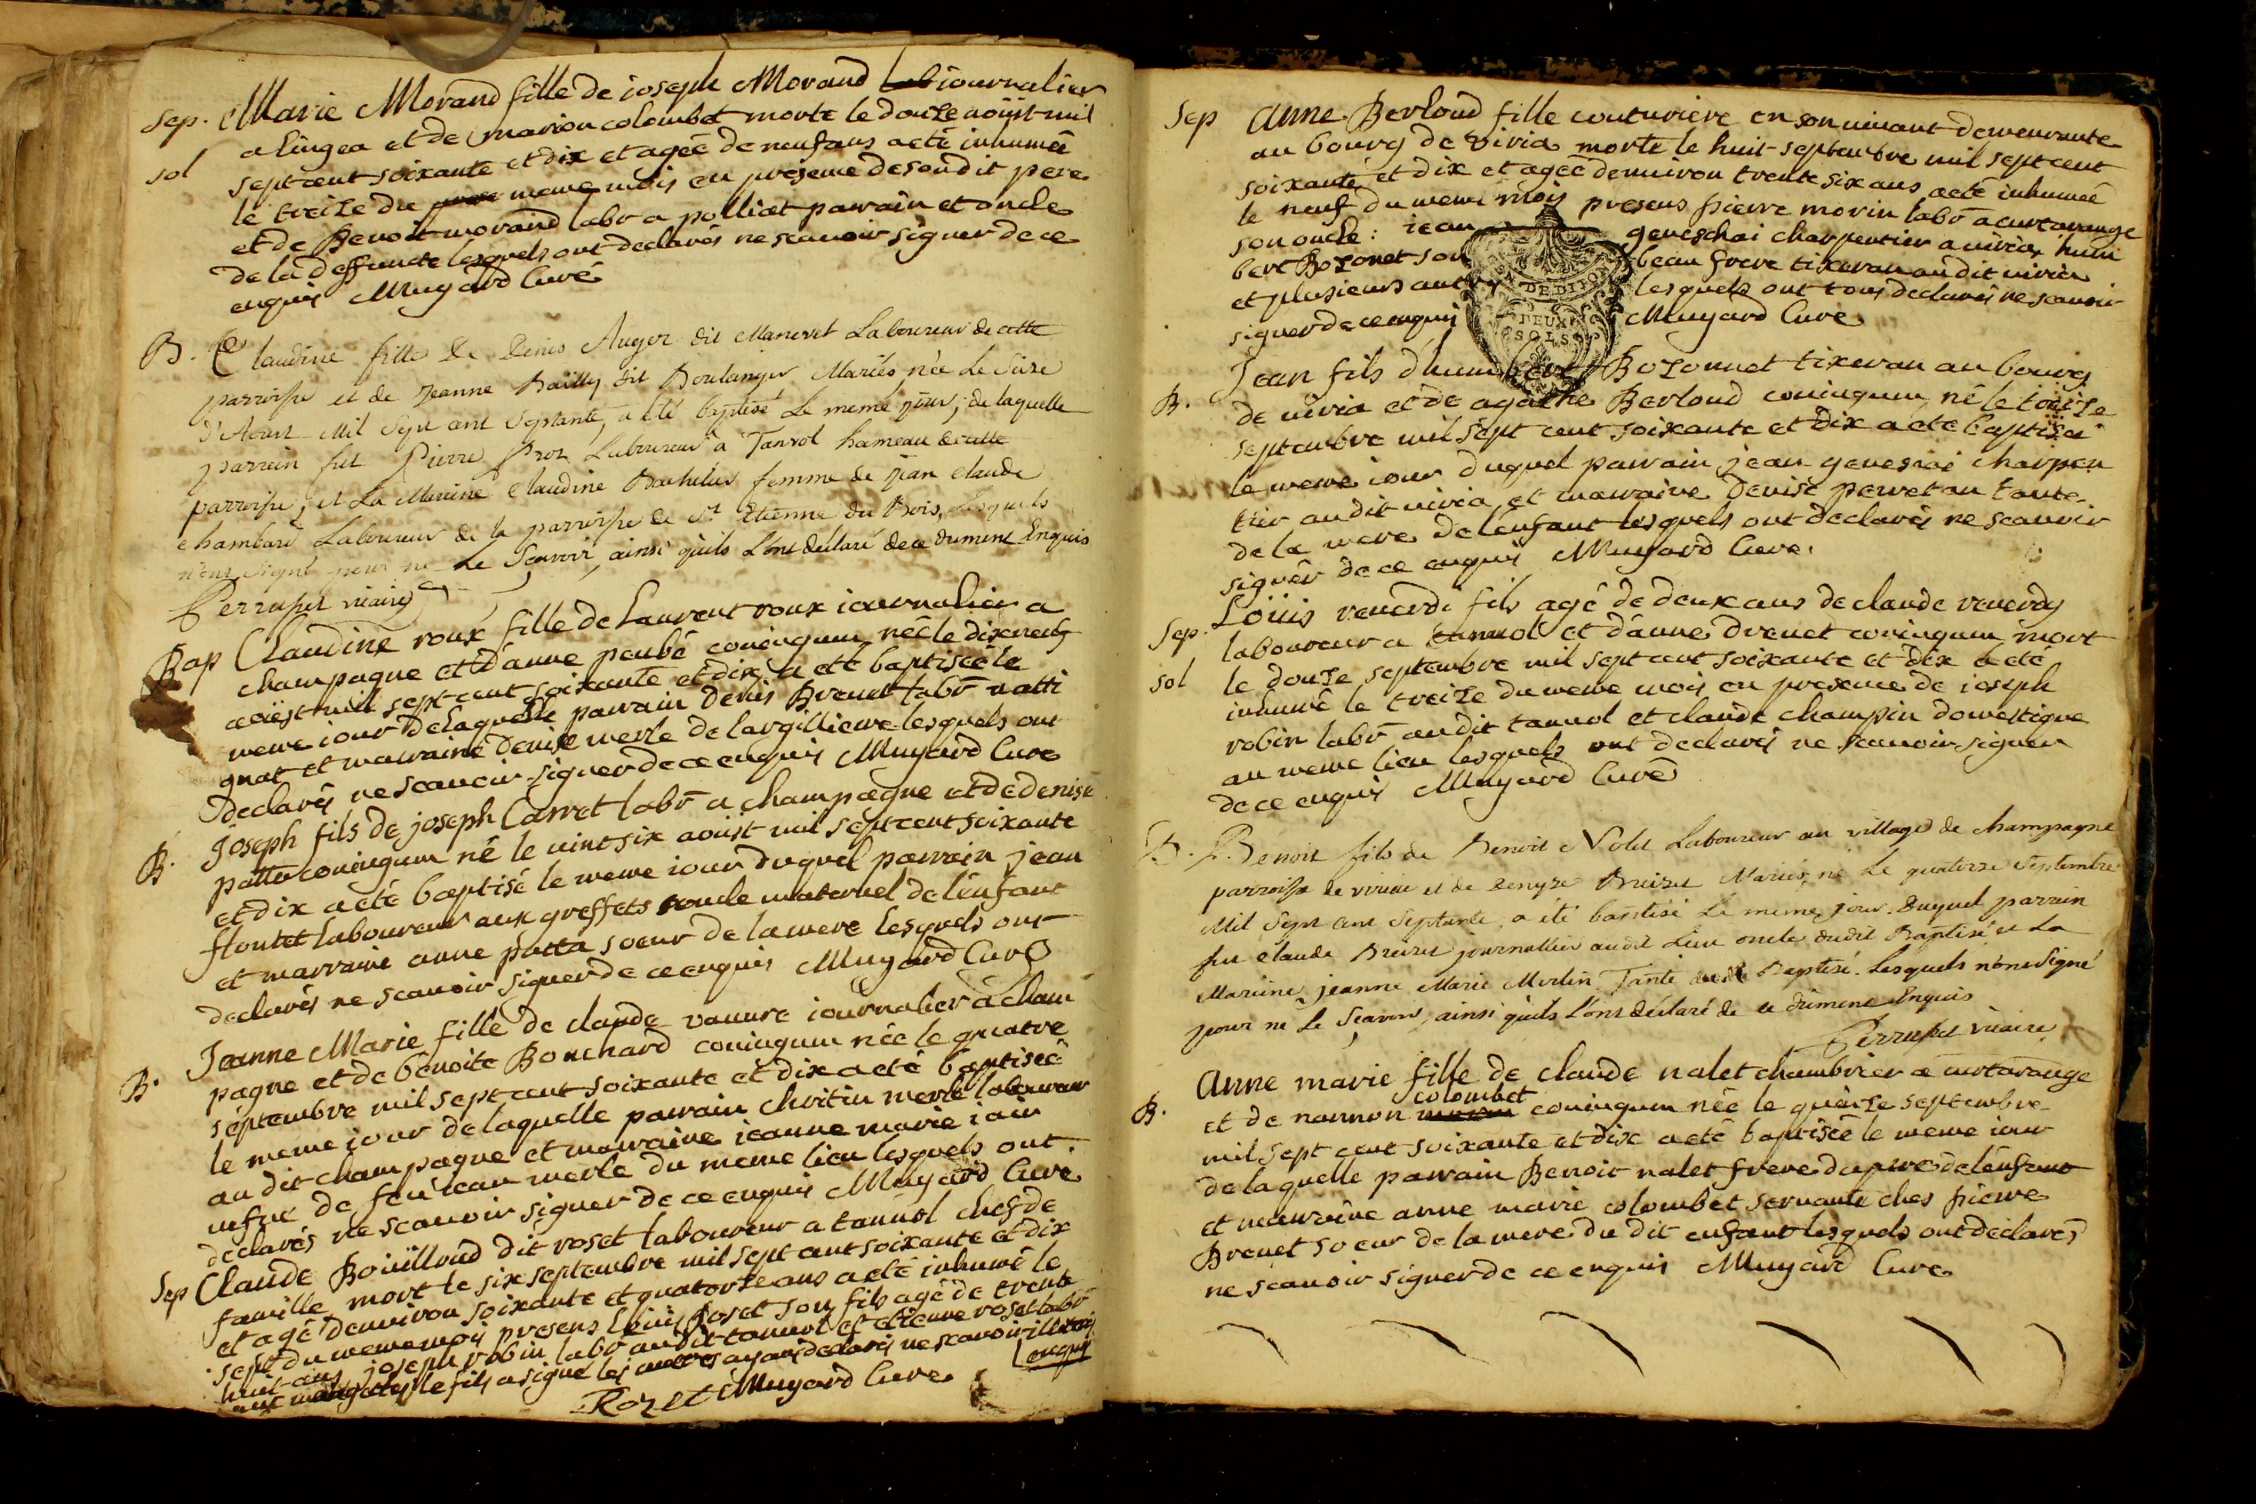 Sep. Marie Morand fille de joseph Morand journalier
sol a lingea et de marion colombet morte le douze aoüst mil
sept cent soixante et dix et agée de neuf ans a eté inhumée
le treize du meme mois en presence de son dit pere
et de Benoit morand labr a polliat parrain et oncle
de la deffuncte lesquels ont declarés ne scauoir signer de ce
enquis Muyard Curé
B. Claudine fille de Denis Auger dit Maneret Laboureur de cette
parroisse et de Jeanne Bailly dit Boulanger Mariés née Le Saize
d'Aout Mil Sept cent Septante, a été baptisé Le meme jour; de laquelle
parrein fut Pierre Broz Laboureur à Tanvol hameau de cette
parroisse; et La Mareine Claudine Bachelus femme de Jean Claude
chambard Laboureur de la parroisse de St Etienne du Bois, Lesquels
n'ont signé pour ne Le Scavoir, ainsi qu'ils L'ont déclaré de ce dument Enquis
Perruset vicaire
Bap Claudine roux fille de Laurent roux journalier a
champagne et d'anne peubé coniugum née le dixneuf
aoüst mil sept cent soixante et dix a eté baptisée le
meme iour de laquelle parrain denis Brenet labr a atti
gnat et marraine denise merle de largilliere lesquels ont
declarés ne scauoir signer de ce enquis Muyard Curé
B. Joseph fils de joseph Carret labr a champagne et de denise
patta coniugum né le vint six aoüst mil sept cent soixante
et dix a eté baptisé le meme iour duquel parrain jean
floutet laboureur aux greffets oncle maternel de l'enfant
et marraine anne patta soeur de la mere lesquels ont
declarés ne scauoir signer de ce enquis Muyard Curé
B. Jeanne Marie fille de claude vauvre iournalier à cham
pagne et de benoite Bouchard coniugum née le quatre
septembre mil sept cent soixante et dix a eté baptisée
le meme iour de laquelle parrain christin merle laboureur
au dit champagne et marraine ieanne marie
uefue de feu iean merle du meme lieu lesquels ont
declarés ne scauoir signer de ce enquis Muyard Curé
Sep Claude Boüilloud dit roset laboureur a tanuol chef de
famille mort le six septembre mil sept cent soixante et dix
et agé denuiron soixante et quatorze ans a eté inhumé le
sept du meme mois presens Roset son fils agé de trente
huit ans joseph robin labr au dit tanuol et etienne roset labr
le fils a signé les autres ayans declarés ne scauoir
enquis
Rozet Muyard Curé
Sep Anne Berloud fille couturiere en son uiuant demeurante
au bourg de viria morte le huit septembre mil sept cent
soixante et dix et agée denuiron trente six ans a eté inhumée
le neuf du meme mois presens pierre morin labr a curtarange
son oncle: iean geneschai charpentier a uiria, hum
bert Bozonet son beau frere tixeran au dit uiria
et plusieurs autres lesquels ont tous declarés ne scauoir
signer de ce enquis Muyard Curé
GEN. DE DIJON
DEUX
SOLS
B. Jean fils d'humbert Bozonnet tixeran au bourg
de uiria et de agathe Berloud coniugum, né le treize
septembre mil sept cent soixante et dix a eté baptisé
le meme iour duquel parrain jean charpen
tier au dit uiria et marraine denise perretan tante
de la mere de l'enfant lesquels ont declarés ne scauoir
signer de ce enquis Muyard Curé.
Sep. Loüis reuerdi fils agé de deux ans de claude reuerdy
sol laboureur a tanuol et d'anne drenet coniugum mort
le douze septembre mil sept cent soixante et dix a eté
inhumé le treize du meme mois en presence de ioseph
robin labr au dit tanuol et claude champin domestique
au meme lieu lesquels ont declarés ne scauoir signer
de ce enquis Muyard Curé
B. Benoit fils de Benoit Nolet Laboureur au village de champagne
parroisse de viria et de Denyse Breizet Mariés, né Le quatorze Septembre
Mil Sept cent Septante, a été baptisé Le meme jour. Duquel parrein
fut Claude Breizet journallier audit Lieu oncle dudit Baptisé et La
Mareine Jeanne Marie Merlin Tante dudit Baptisé. Lesquels n'ont signé
pour ne Le Scavoir, ainsi qu'ils L'ont déclaré de ce dûment Enquis
Perruset vicaire
B. Anne marie fille de claude nalet chambrier a curtarange
et de nannon colombet coniugum née le quinze septembre
mil sept cent soixante et dix a eté baptisée le meme iour
de laquelle parrain Benoit nalet frere du pere de l'enfant
et marraine anne marie colombet seruante ches pierre
Brenet soeur de la mere du dit enfant lesquels ont declarés
ne scauoir signer de ce enquis Muyard Curé